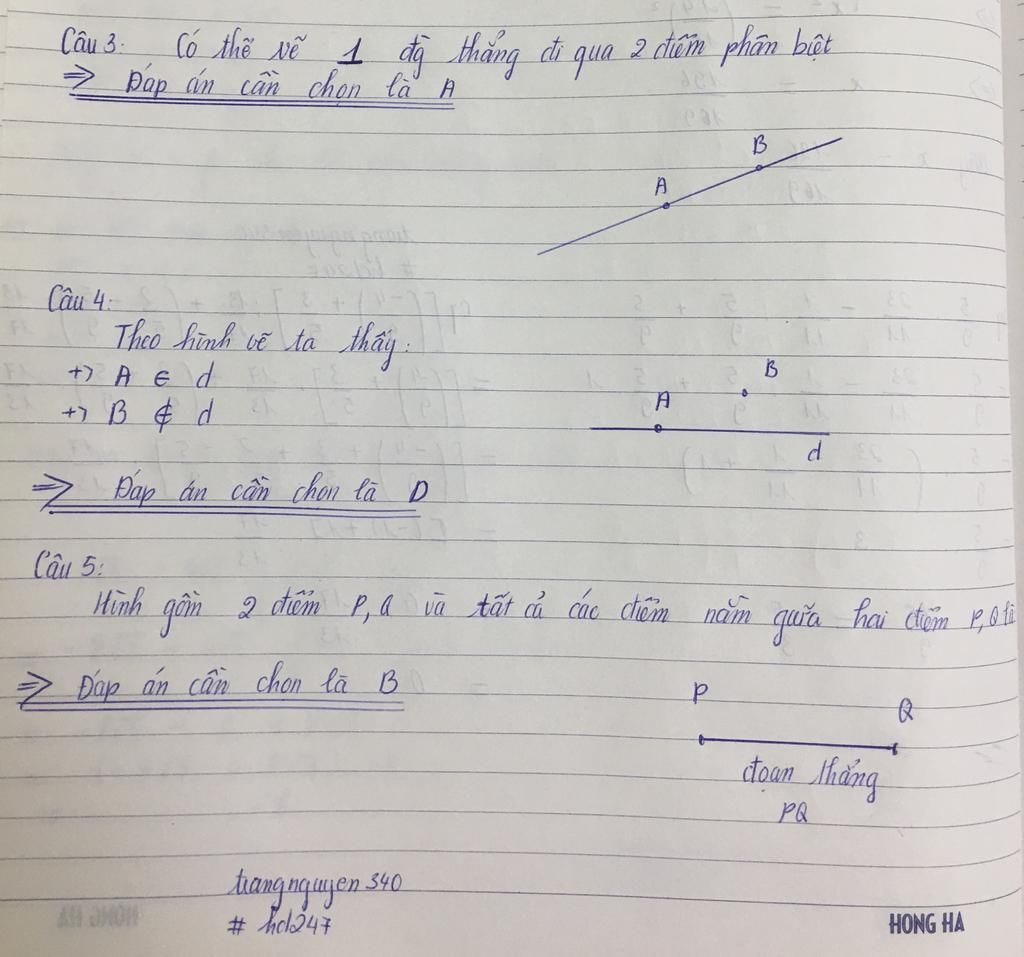 Câu 3: Có thể vẽ 1 đg thẳng đi qua 2 điểm phân biệt
=> Đáp án cần chọn là A
B
A
Câu 4:
Theo hình vẽ ta thấy:
+> A ∈ d
+> B ∉ d
B
A
d
=> Đáp án cần chọn là D
Câu 5:
Hình gồm 2 điểm P, Q và tất cả các điểm nằm giữa hai điểm P, Q là
=> Đáp án cần chọn là B
P
Q
đoạn thẳng
PQ
trangnguyen340
# hcl247
HONG HA